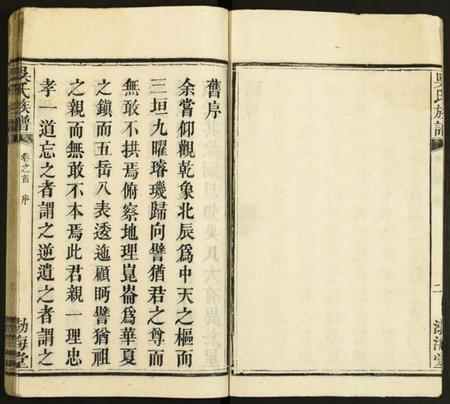 吳氏族譜
二
渤海堂
舊序
余嘗仰觀乾象北辰爲中天之樞而
三垣九曜璿璣歸向譬猶君之尊而
無敢不拱焉俯察地理崑崙爲華夏
之鎮而五岳八表透迤顧眄譬猶祖
之親而無敢不本焉此君親一理忠
孝一道忘之者謂之逆遺之者謂之
吳氏族譜
卷之首 序
渤海堂